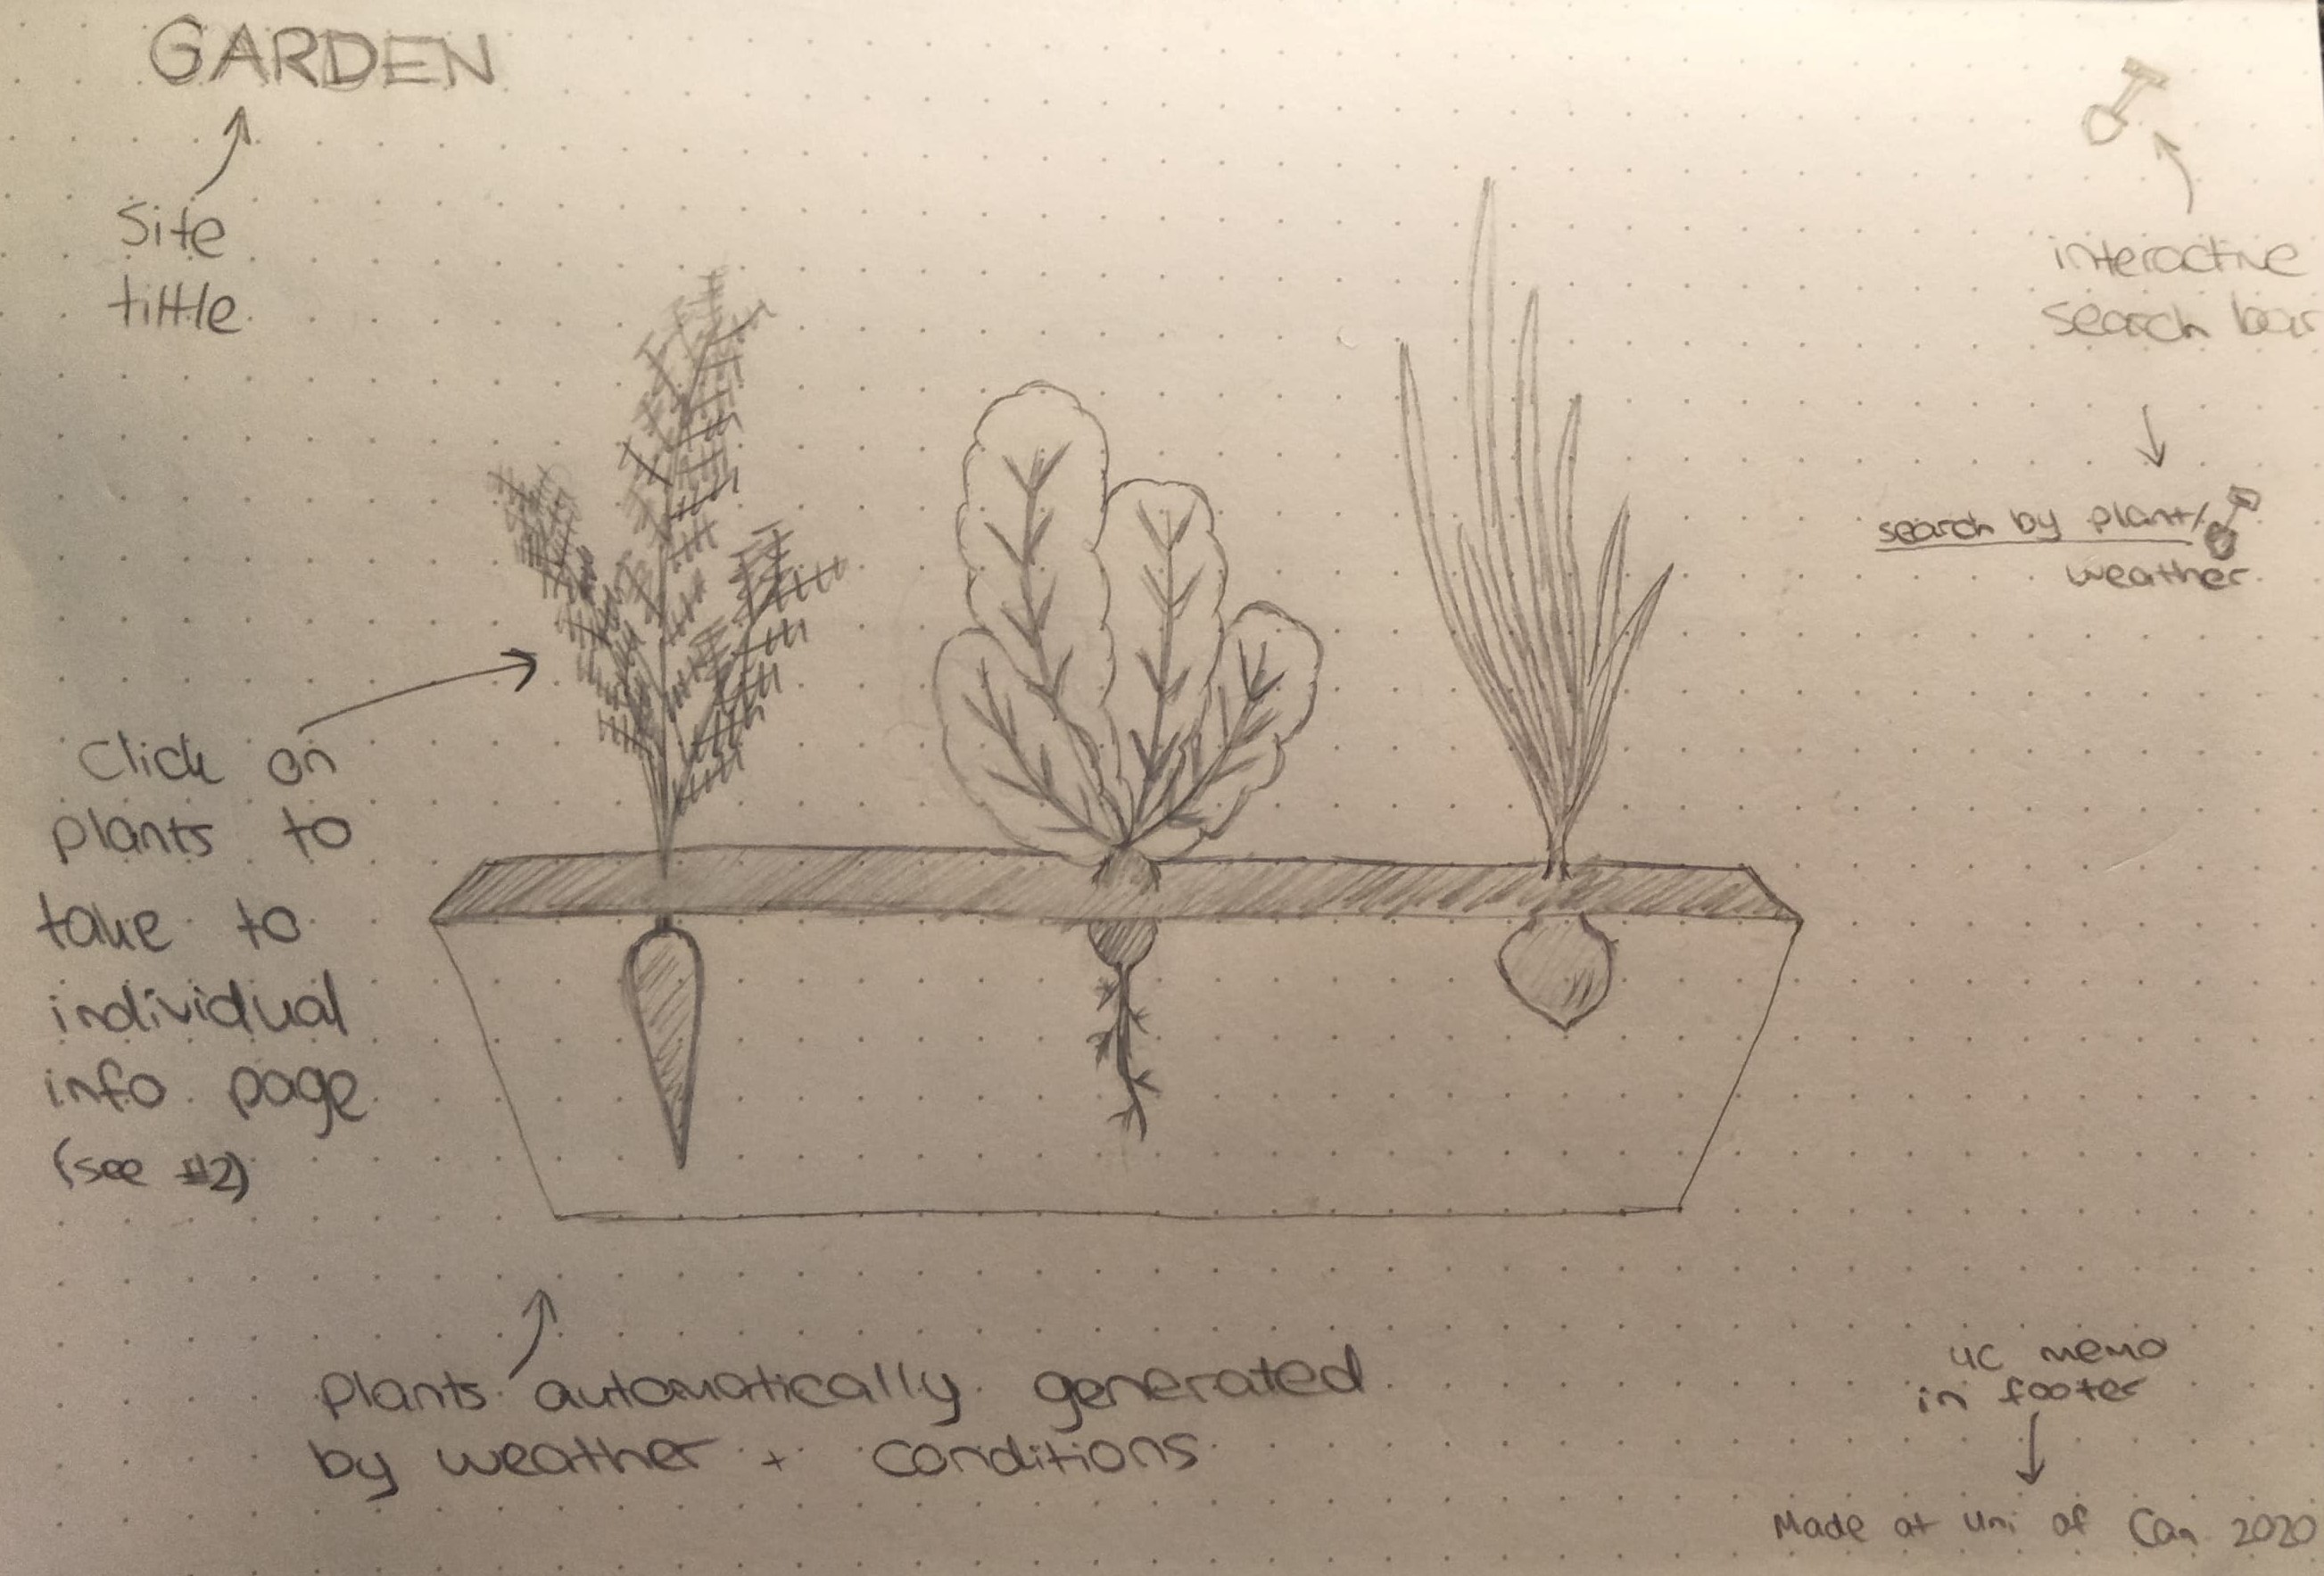 GARDEN
Site
tittle
interactive
search bar
search by plant/
weather
Click on
plants to
take to
individual
info page
(see #2)
plants automatically generated
by weather + conditions
UC memo
in footer
Made at Uni of Can 2020